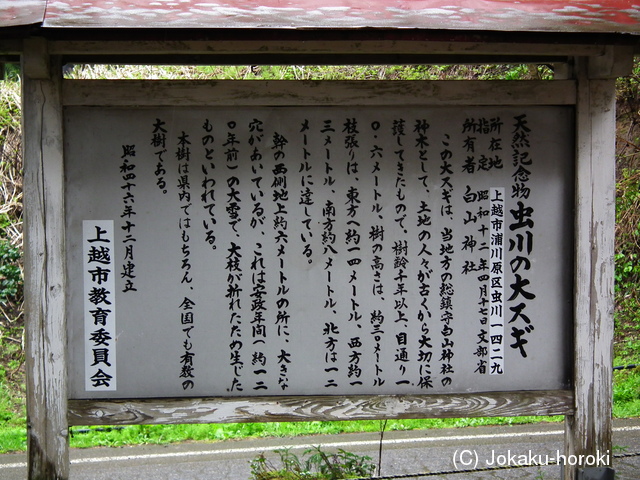 天然記念物 虫川の大スギ
所在地 上越市浦川原区虫川一四二九
指定 昭和十二年四月十七日文部省
所有者 白山神社
この大スギは、当地方の総鎮守白山神社の
神木として、土地の人々が古くから大切に保
護してきたもので、樹齢千年以上、目通り一
〇・六メートル、樹の高さは、約三〇メートル
枝張りは、東方へ約一四メートル、西方約一
三メートル、南方約八メートル、北方は一三
メートルに達している。
幹の西側地上約六メートルの所に、大きな
穴があいているが、これは安政年間（約一二
〇年前）の大雪で、大枝が折れたため生じた
ものといわれている。
本樹は県内ではもちろん、全国でも有数の
大樹である。
昭和四十六年十二月建立
上越市教育委員会
(C) Jokaku-horoki